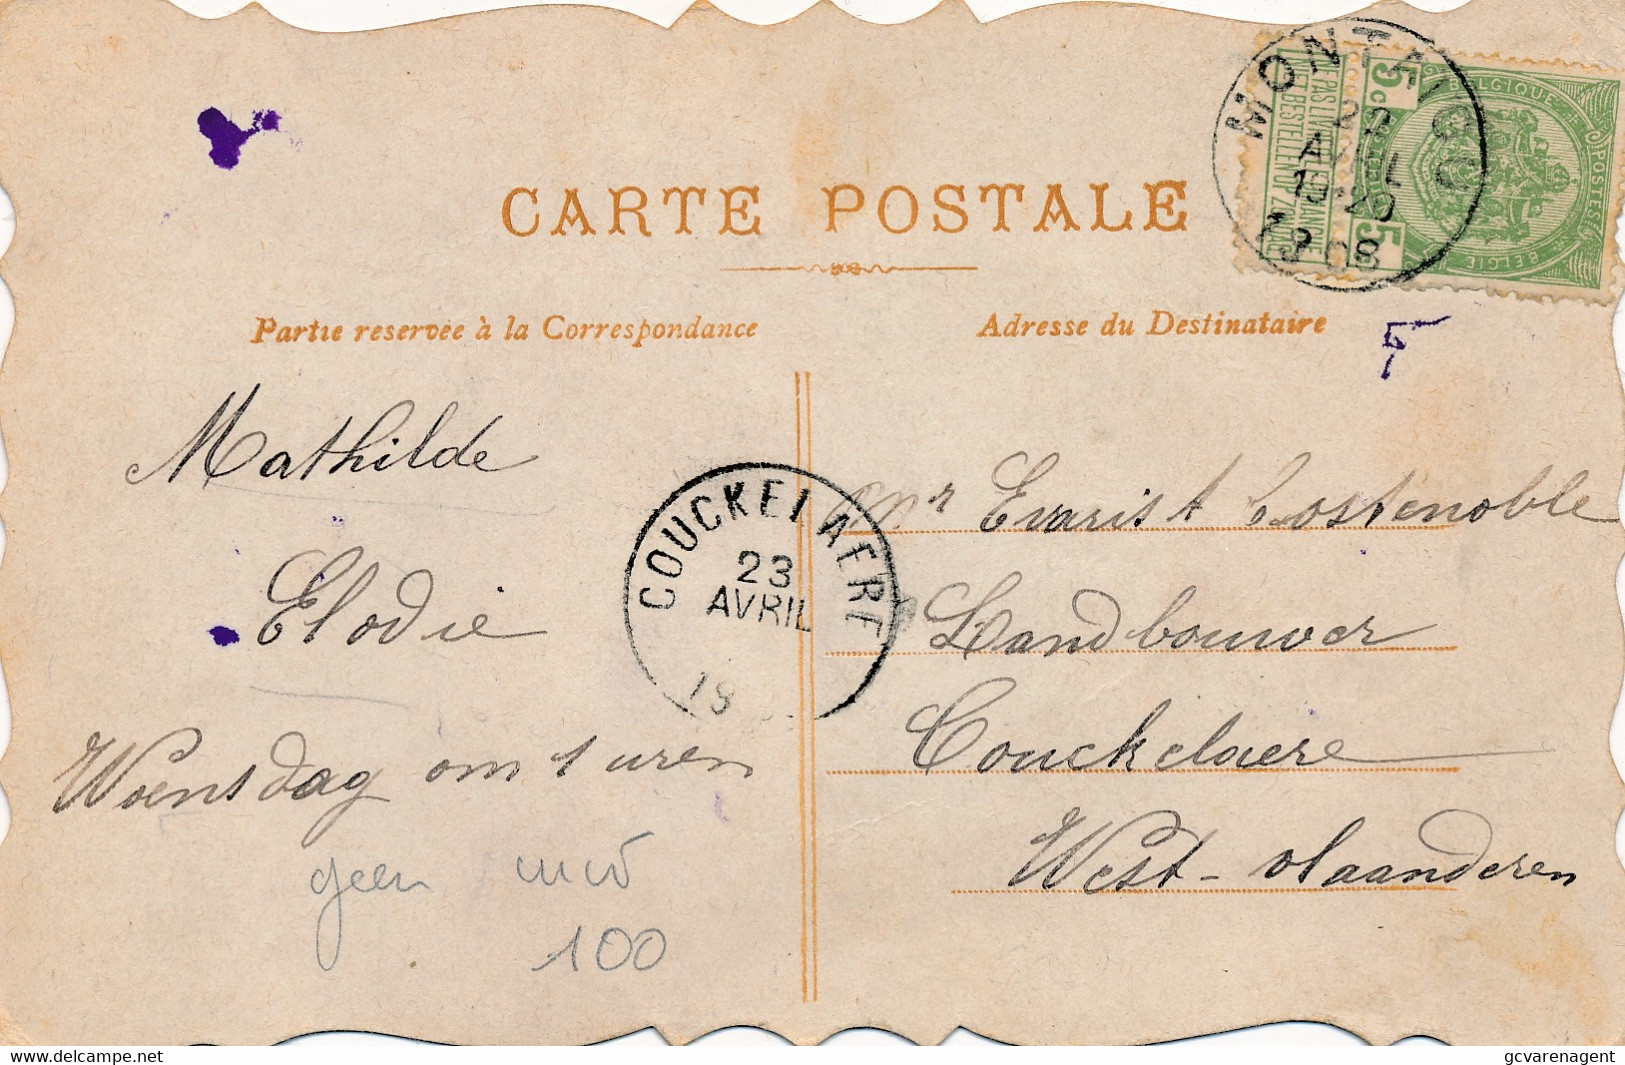 CARTE POSTALE
Partie reservée à la Correspondance
Adresse du Destinataire
MONTAIGU
22
AVRIL
19-20
1908
5c
BELGIQUE
POSTES
BELGIE
5c
NE PAS LIVRER LE DIMANCHE
NIET BESTELLEN OP ZONDAG
Mathilde
Elodie
Woensdag om 1 uren
geen
100
COUCKELAERE
23
AVRIL
19
Mr Evarist Costenoble
Landbouwer
Couckelaere
West-vlaanderen
gcvarenagent